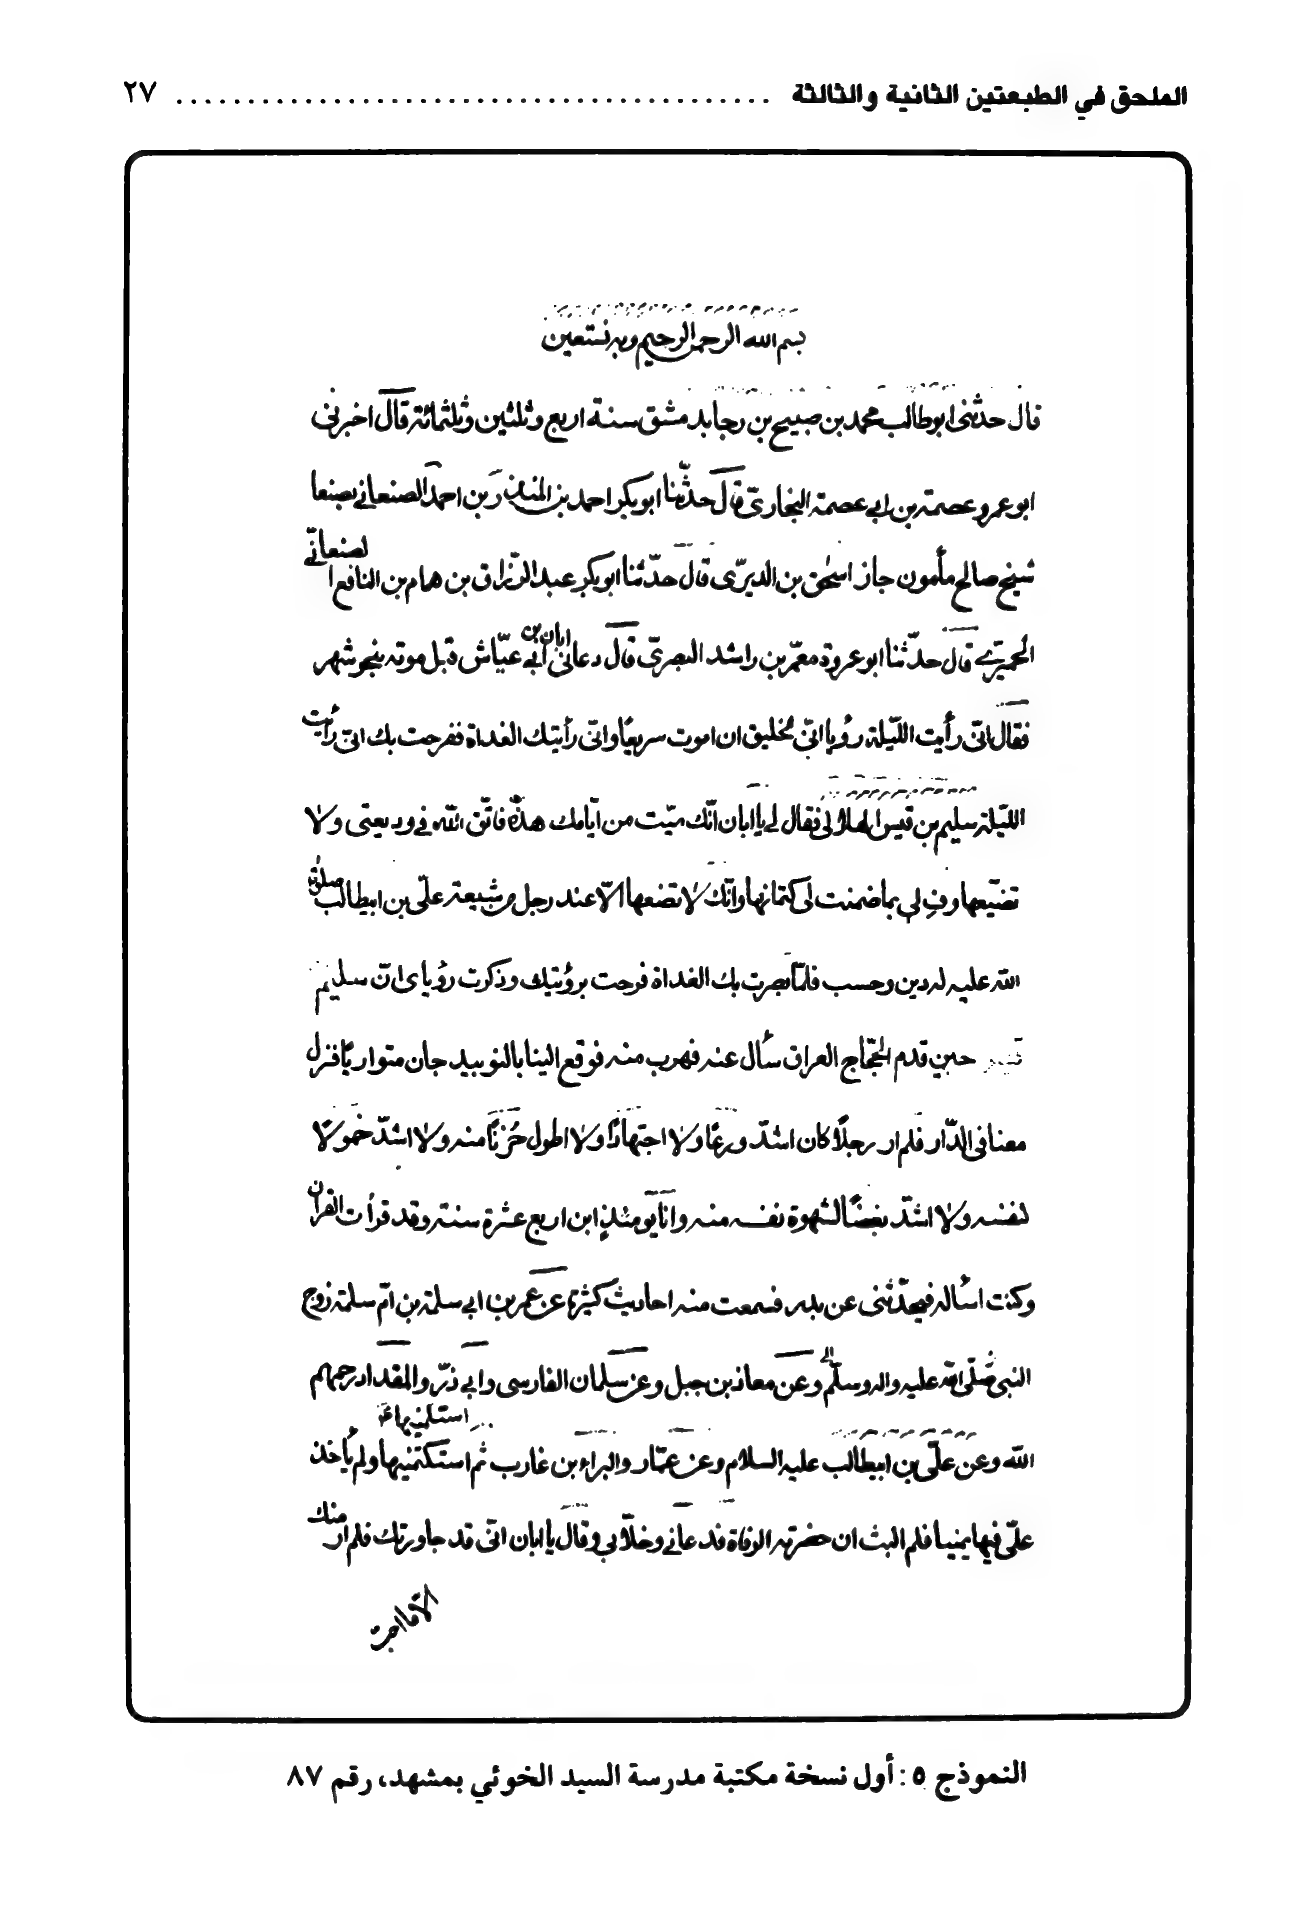 الملحق في الطبعتين الثانية والثالثة ........................................ ٢٧
بسم الله الرحمن الرحيم وبه نستعين
قال حدثنى ابوطالب محمد بن صبيح بن رجا بدمشق سنة اربع وثلثين وثلثمائة قال اخبرنى
ابو عمرو عصمة بن ابي عصمة البخارىّ قال حدّثنا ابو بكر احمد بن المنذر بن احمد الصنعاني بصنعا
شيخ صالح مأمون جار اسحٰق بن الديرّى قال حدّثنا ابو بكر عبد الرّزاق بن همام بن النافع الصنعانّي
الحميرّي قال حدّثنا ابو عروة معمّر بن راشد البصرىّ قال دعانى ابان بن أبي عيّاش قبل موته بنحو شهر
فقال انّى رأيت الليّلة رؤيا انّي لخليق ان اموت سريعًا وانّى رأيتك الغداة ففرحت بك انىّ رأيت
الليّلة سليم بن قيس الهلالى فقال لي يا ابان انّك ميّت من ايّامك هذه فاتّق اللّه في وديعتى ولا
تضيّعها وفِ لي بما ضمنت لى كتمانها وانّك لا تضعها الّا عند رجل من شيعة علّى بن ابيطالب صلوة
اللّه عليه له دين وحسب فلمّا بصرت بك الغداة فرحت برؤيتك وذكرت رؤياى انّ سليم
حين قدم الحجّاج العراق سأل عنه فهرب منه فوقع الينا بالنوبيدجان متواريًا فنزل
معنا فى الدّار فلم ار رجلًا كان اشدّ ورعًا ولا اجتهادًا ولا اطول حُزنًا منه ولا اشدّ خمولًا
لنفسه ولا اشدّ بغضًا لشهوة نفسه منه وانا يومئذٍ ابن اربع عشرة سنة وقد قرأت القرآن
وكنت اسأله فيحدّثنى عن بدر فسمعت منه احاديث كثيرة عن عمر بن ابي سلمة بن امّ سلمة زوج
النبى صلّى الله عليه واله وسلّم وعن معاذ بن جبل وعن سلمان الفارسى وابي ذرّ والمقداد رحمهم
اللّه وعن علّى بن ابيطالب عليه السلام وعن عمّار والبراء بن عازب ثم استكتمنيها ولم يأخذ
علّى فيها يمينا فلم البث ان حضرته الوفاة فدعاني وخلا بي وقال يا ابان انّى قد جاورتك فلم ار منك
الّا ما احب
النموذج ٥: أول نسخة مكتبة مدرسة السيد الخوئي بمشهد، رقم ٨٧